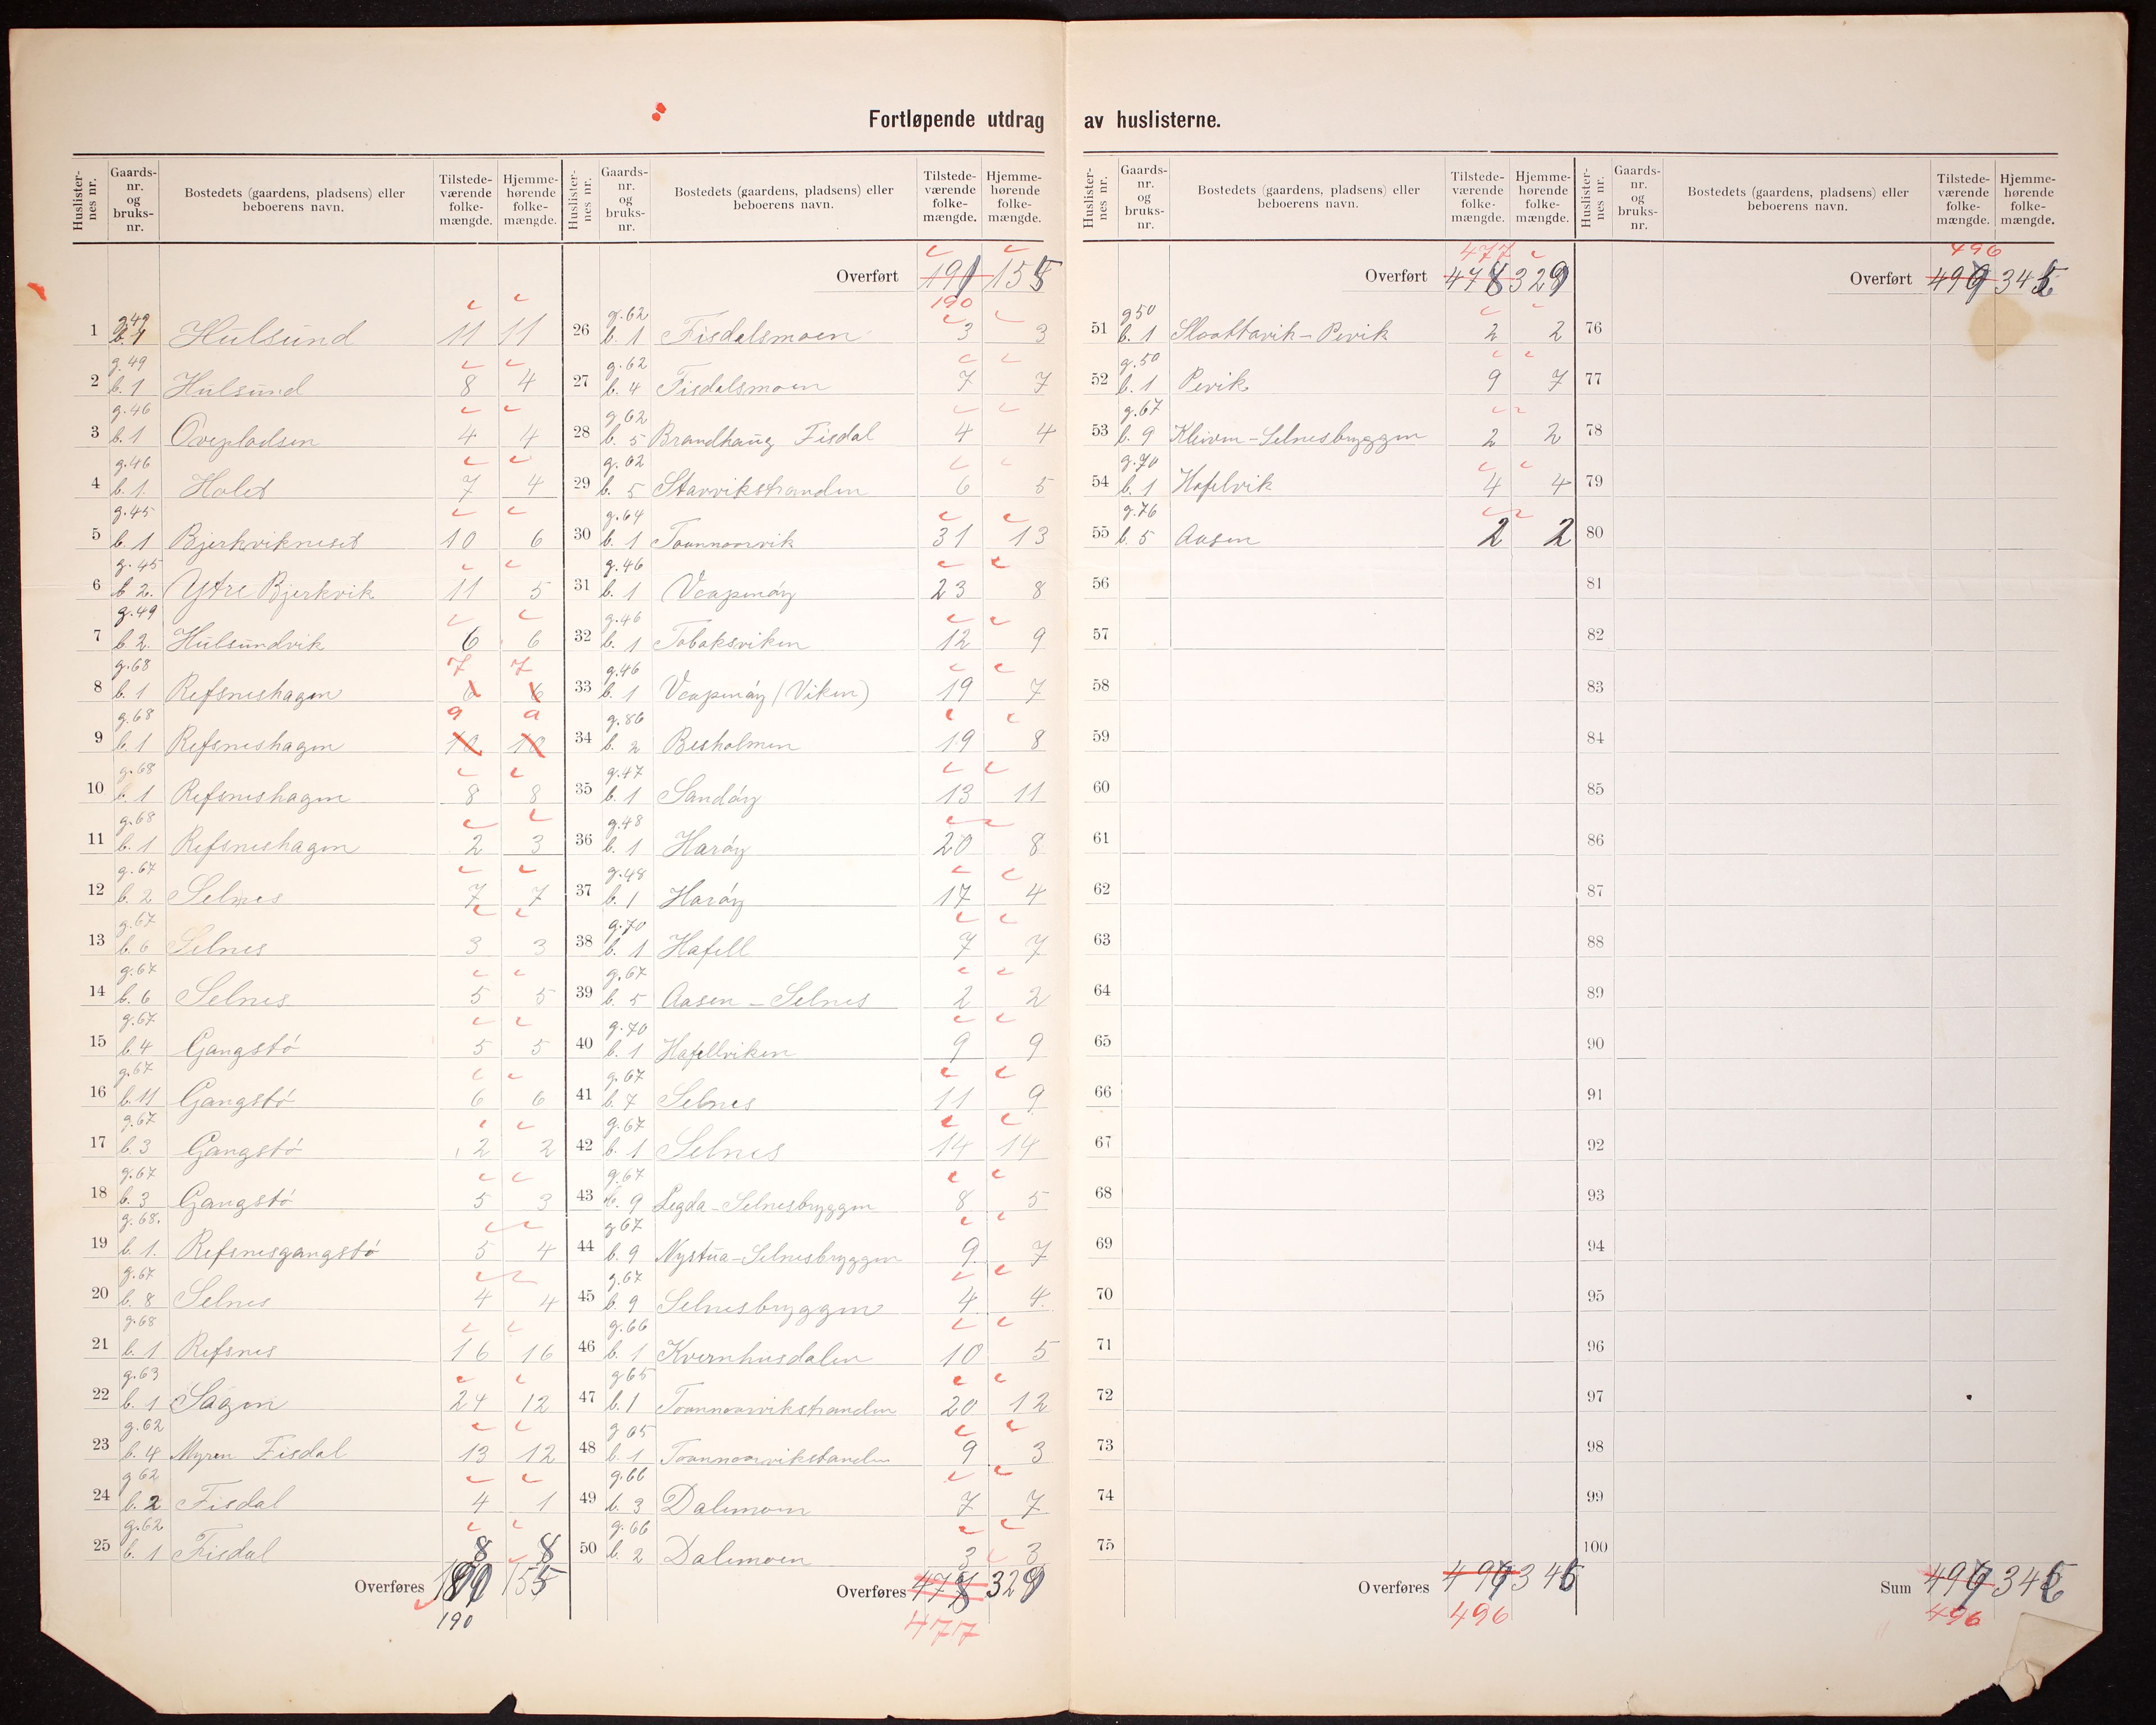 Fortløpende utdrag av huslisterne.
Huslister-nes nr. Gaards-nr. og bruks-nr. Bostedets (gaardens, pladsens) eller beboerens navn. Tilstede-værende folke-mængde. Hjemme-hørende folke-mængde.
1 g. 49 b. 1 Hulsund 11 11
2 g. 49 b. 1 Hulsund 8 4
3 g. 46 b. 1 Ovepladsen 4 4
4 g. 46 b. 1. Holet 7 4
5 g. 45 b. 1 Bjerkvikneset 10 6
6 g. 45 b 2. Ytre Bjerkvik 11 5
7 g. 49 b. 2. Hulsundvik 6 6
8 g. 68 b. 1 Refsneshagen 7 7
9 g. 68 b. 1 Refsneshagen 10 10 9 9
10 g. 68 b. 1 Refsneshagen 8 8
11 g. 68 b. 1 Refsneshagen 2 3
12 g. 67 b. 2 Selnes 7 7
13 g. 67 b. 6 Selnes 3 3
14 g. 67 b. 6 Selnes 5 5
15 g. 67 b. 4 Gangstö 5 5
16 g. 67 b. 11 Gangstö 6 6
17 g. 67 b. 3 Gangstö 2 2
18 g. 67 b. 3 Gangstö 5 3
19 g. 68. b. 1. Refsnesgangstö 5 4
20 g. 67 b. 8 Selnes 4 4
21 g. 68 b. 1 Refsnes 16 16
22 g. 63 b. 1 Sagen 24 12
23 g. 62 b. 4 Myren Fisdal 13 12
24 g 62 b. 2 Fisdal 4 1
25 g. 62 b. 1 Fisdal 8 8
Overføres 155
190
Huslister-nes nr. Gaards-nr. og bruks-nr. Bostedets (gaardens, pladsens) eller beboerens navn. Tilstede-værende folke-mængde. Hjemme-hørende folke-mængde.
Overført 191 155
190
26 g. 62 b. 1 Fisdalsmoen 3 3
27 g. 62 b. 4 Fisdalsmoen 7 7
28 g 62 b. 5 Brandhaug Fisdal 4 4
29 g. 62 b. 5 Starvikstranden 6 5
30 g. 64 b. 1 31 13
31 g. 46 b. 1 23 8
32 g. 46 b. 1 Tobaksviken 12 9
33 g. 46 b. 1 (Viken) 19 7
34 g. 86 b. 2 Besholmen 19 8
35 g. 47 b. 1 Sandöy 13 11
36 g. 48 b. 1 Haröy 20 8
37 g. 48 b. 1 Haröy 17 4
38 g. 70 b. 1 Hafell 7 7
39 g. 67 b. 5 Aasen - Selnes 2 2
40 g. 70 b. 1 Hafellviken 9 9
41 g. 67 b. 7 Selnes 11 9
42 g. 67 b. 1 Selnes 14 14
43 g. 67 b. 9 Legda - Selnesbryggen 8 5
44 g 67 b. 9 Nystua - Selnesbryggen 9 7
45 g. 67 b. 9 Selnesbryggen 4 4
46 g. 66 b. 1 Kvernhusdalen 10 5
47 g 65 b. 1 20 12
48 g 65 b. 1 9 3
49 g. 66 b. 3 Dalemoen 7 7
50 g. 66 b. 2 Dalemoen 3 3
Overføres 478 329
477
Huslister-nes nr. Gaards-nr. og bruks-nr. Bostedets (gaardens, pladsens) eller beboerens navn. Tilstede-værende folke-mængde. Hjemme-hørende folke-mængde.
477
Overført 478 329
51 g 50 b. 1 2 2
52 g. 50 b. 1 Pevik 9 7
53 g. 67 b. 9 Kleiven - Selnesbryggen 2 2
54 g. 70 b. 1 Hafelvik 4 4
55 g. 76 b. 5 Aasen 2 2
56
57
58
59
60
61
62
63
64
65
66
67
68
69
70
71
72
73
74
75
Overføres
496
Huslister-nes nr. Gaards-nr. og bruks-nr. Bostedets (gaardens, pladsens) eller beboerens navn. Tilstede-værende folke-mængde. Hjemme-hørende folke-mængde.
496
Overført
76
77
78
79
80
81
82
83
84
85
86
87
88
89
90
91
92
93
94
95
96
97
98
99
100
Sum
496